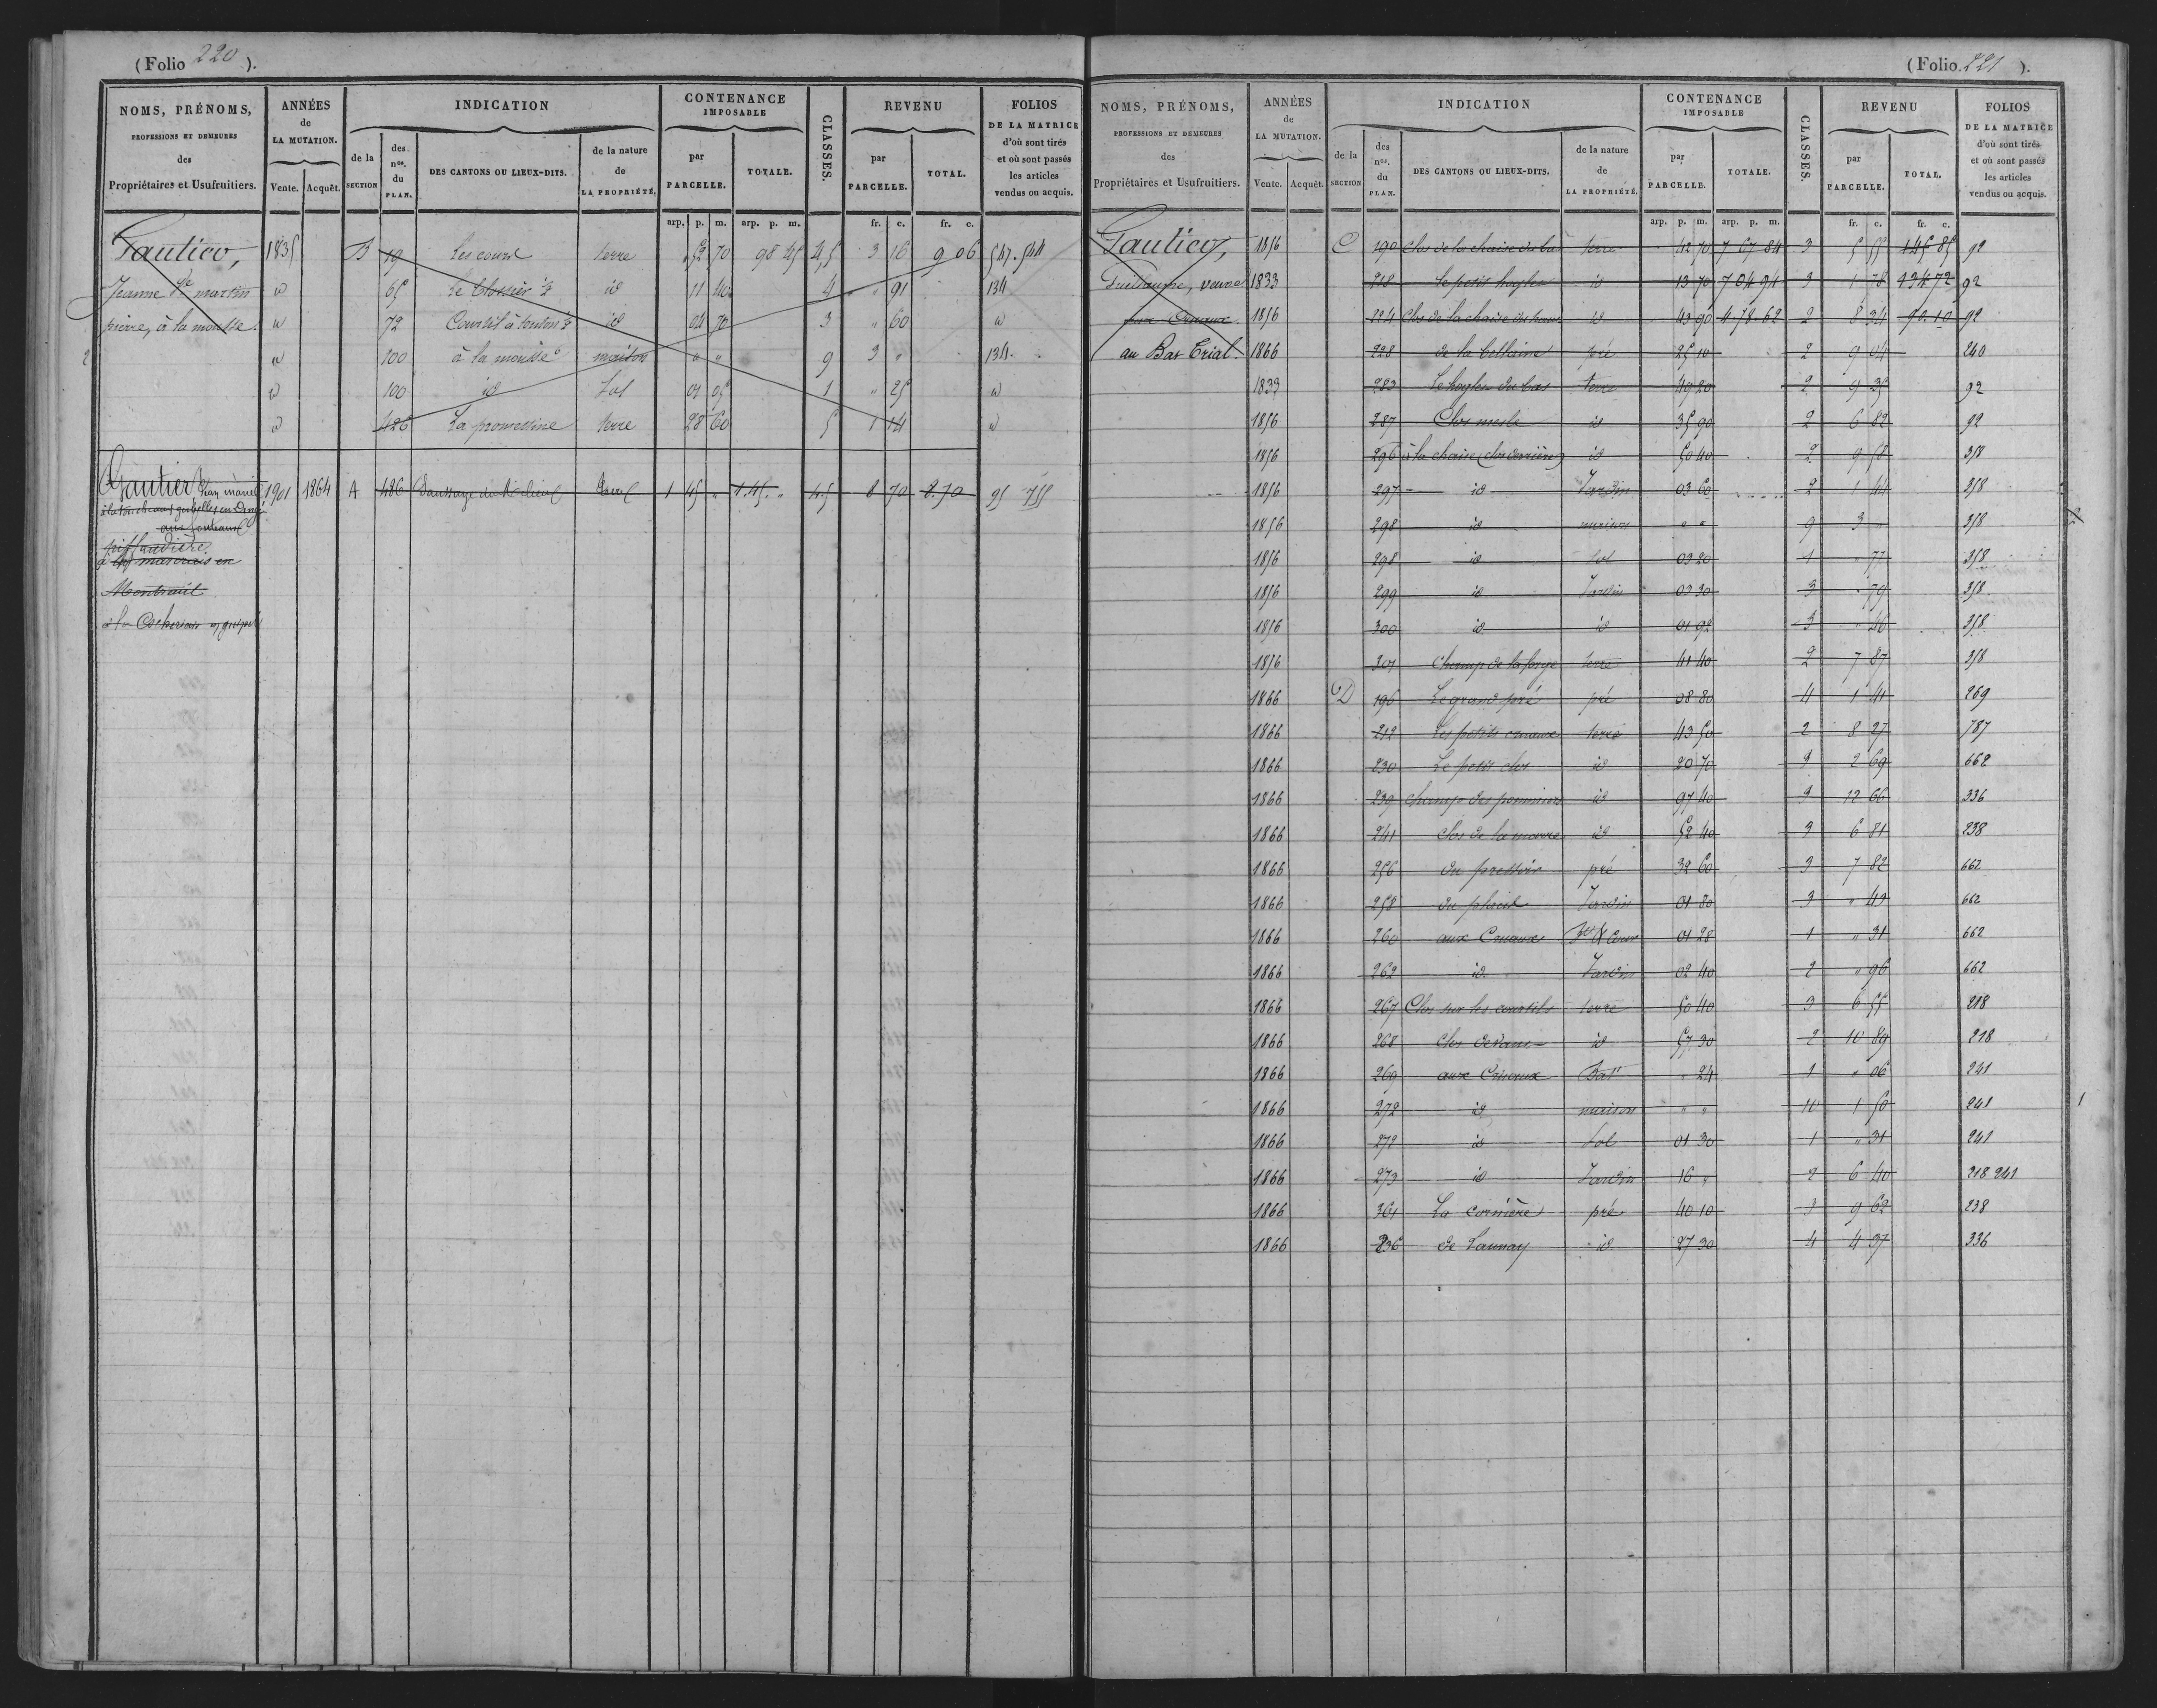 (Folio 220).
NOMS, PRÉNOMS, PROFESSIONS ET DEMEURES des Propriétaires et Usufruitiers.
ANNÉES de LA MUTATION. Vente. Acquêt.
INDICATION de la SECTION des nos. du PLAN. DES CANTONS OU LIEUX-DITS. de la nature de LA PROPRIÉTÉ.
CONTENANCE IMPOSABLE par PARCELLE. TOTALE.
CLASSES.
REVENU par PARCELLE. TOTAL.
FOLIOS DE LA MATRICE d'où sont tirés et où sont passés les articles vendus ou acquis.
arp. p. m. arp. p. m. fr. c. fr. c.
Gautier, 1835 B 19 Les cours terre 52 70 98 45 4,5 3 16 9 06 547. 544
Jeanne Ve martin id 65 id 11 40 4 " 91 134
pierre, à la mousse. id 72 id 04 70 3 " 60 id
id 100 à la mousse maison " " 9 3 " 134.
id 100 id Sol 01 05 1 " 25 id
id 426 terre 28 60 5 1 14 id
Gautier Jean marie 1901 1864 A 486 terre 1 45 " 1.45. " 4.5 8 70 8.70 95 755
Montreuil
(Folio 221).
NOMS, PRÉNOMS, PROFESSIONS ET DEMEURES des Propriétaires et Usufruitiers.
ANNÉES de LA MUTATION. Vente. Acquêt.
INDICATION de la SECTION des nos. du PLAN. DES CANTONS OU LIEUX-DITS. de la nature de LA PROPRIÉTÉ.
CONTENANCE IMPOSABLE par PARCELLE. TOTALE.
CLASSES.
REVENU par PARCELLE. TOTAL.
FOLIOS DE LA MATRICE d'où sont tirés et où sont passés les articles vendus ou acquis.
arp. p. m. arp. p. m. fr. c. fr. c.
Gautier, 1856 C 190 Clos de la chaise du bas terre 42 70 7 67 84 3 5 55 145 85 92
Guillaume, veuve 1833 218 Le petit id 13 70 7 04 94 3 1 78 134 72 92
aux Cruaux. 1856 224 Clos de la chaise du haut id 43 90 4 78 62 2 8 34 90.10 92
au Bas Trial. 1866 228 pré 25 10 2 9 04 240
1833 283 terre 49 20 2 9 35 92
1856 287 Clos mesle id 35 90 2 6 82 92
1856 296 à la chaise (clos derrière) id 50 40 2 9 58 358
1856 297 id Jardin 03 60 2 1 44 358
1856 298 id maison " " 9 3 " 358
1856 298 id sol 03 20 1 " 77 358
1856 299 id Jardin 03 30 3 " 79 358
1856 300 id id 01 92 3 " 46 358
1856 301 Champ de la forge terre 41 40 2 7 87 358
1866 D 196 Le grand pré pré 08 80 4 1 41 269
1866 212 Les petits cruaux terre 43 50 2 8 27 787
1866 230 Le petit clos id 20 70 3 2 69 662
1866 239 Champ des pommiers id 97 40 3 12 66 336
1866 241 Clos de la marre id 52 40 3 6 81 238
1866 256 du pressoir pré 32 60 3 7 82 662
1866 258 du placis Jardin 01 80 3 " 43 662
1866 260 aux Cruaux Bat & Cour 01 28 1 " 31 662
1866 262 id Jardin 02 40 2 " 96 662
1866 267 Clos sur les courtils terre 50 40 3 6 55 218
1866 268 Clos devant id 57 30 2 10 89 218
1866 269 aux Cruaux Bat " 24 1 " 06 241
1866 272 id maison " " 10 1 50 241
1866 272 id Sol 01 30 1 " 31 241
1866 273 id Jardin 16 " 2 6 40 218 241
1866 361 La cornière pré 40 10 3 9 62 238
1866 236 de Launay id 27 30 4 4 37 336